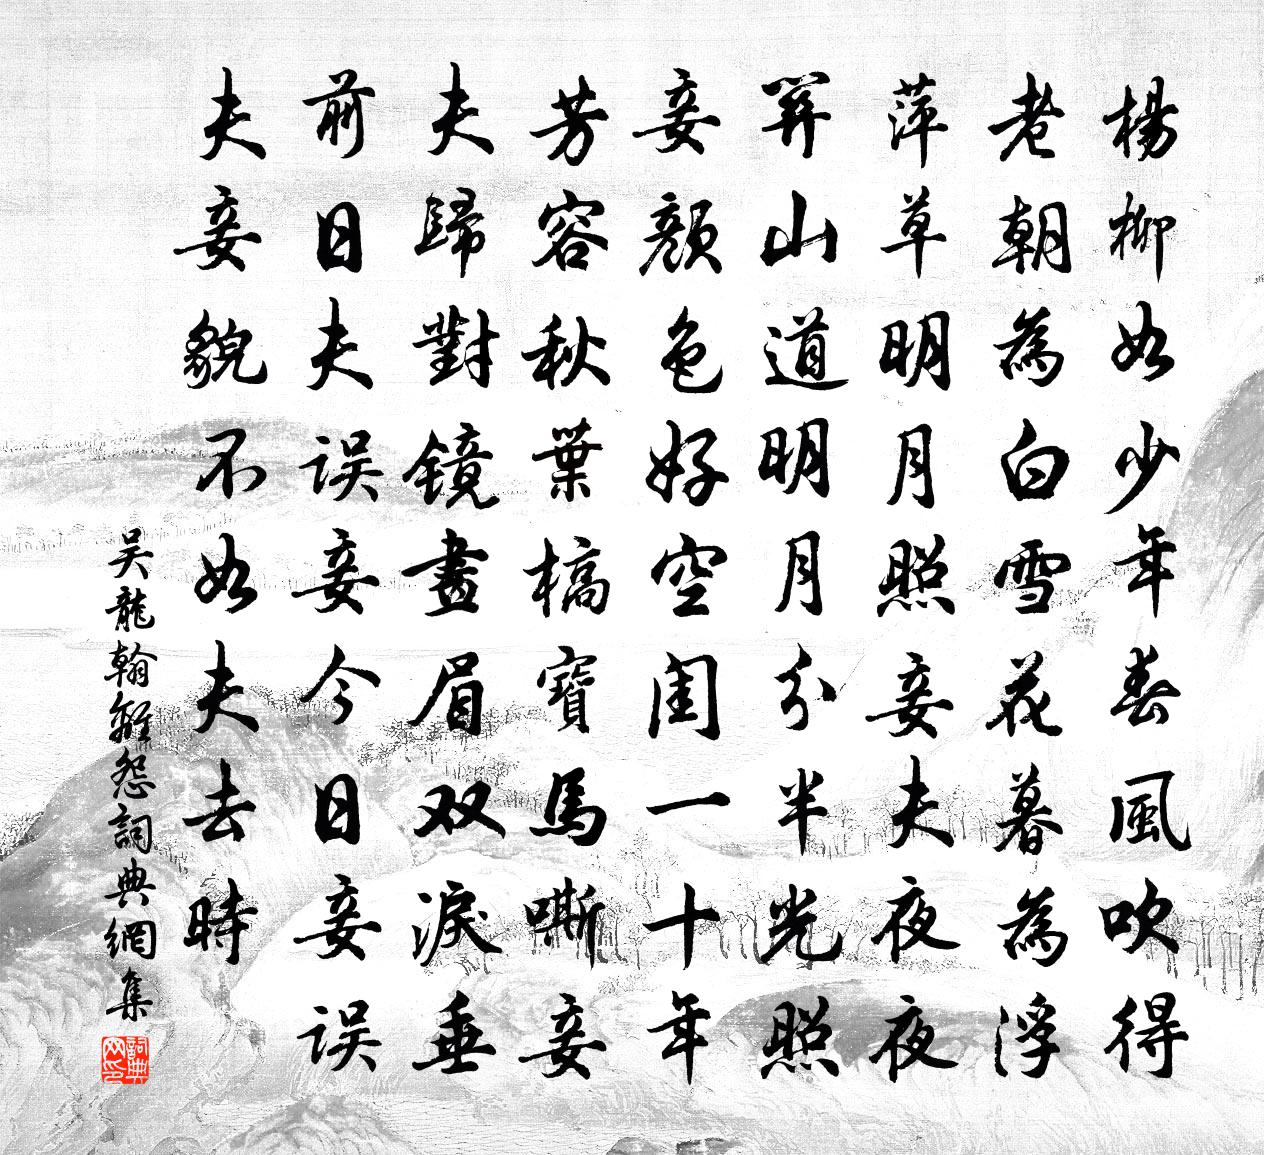 楊柳如少年春風吹得
老朝為白雪花暮為浮
萍草明月照妾夫夜夜
關山道明月分半光照
妾顏色好空閨一十年
芳容秋葉槁寶馬嘶妾
夫歸對鏡畫眉双淚垂
前日夫误妾今日妾误
夫妾貌不如夫去時
吴龍翰離怨詞典網集
詞典网印